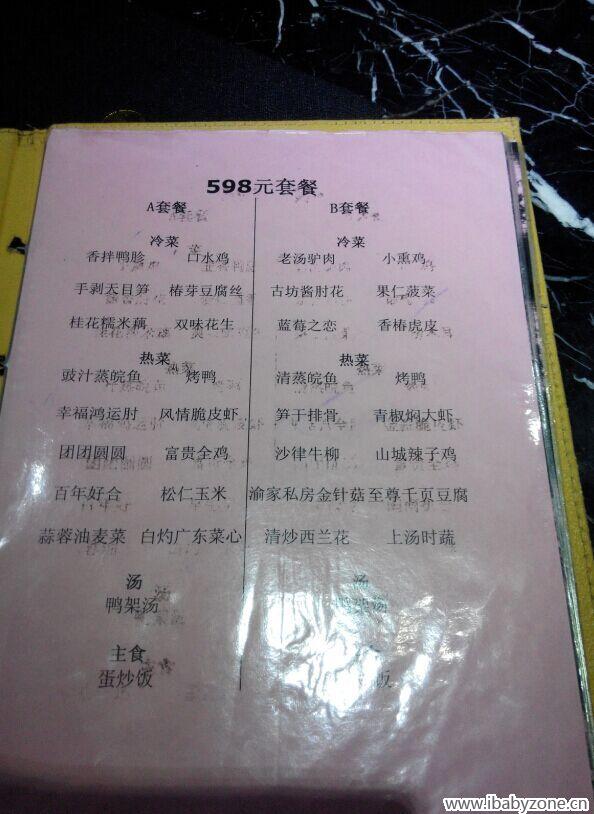 598元套餐
A套餐 B套餐
冷菜 冷菜
香拌鸭胗 口水鸡 老汤驴肉 小熏鸡
手剥天目笋 椿芽豆腐丝 古坊酱肘花 果仁菠菜
桂花糯米藕 双味花生 蓝莓之恋 香椿虎皮
热菜 热菜
豉汁蒸皖鱼 烤鸭 清蒸皖鱼 烤鸭
幸福鸿运肘 风情脆皮虾 笋干排骨 青椒焖大虾
团团圆圆 富贵全鸡 沙律牛柳 山城辣子鸡
百年好合 松仁玉米 渝家私房金针菇 至尊千页豆腐
蒜蓉油麦菜 白灼广东菜心 清炒西兰花 上汤时蔬
汤 汤
鸭架汤 鸭架汤
主食
蛋炒饭 饭
www.ibabyzone.cn